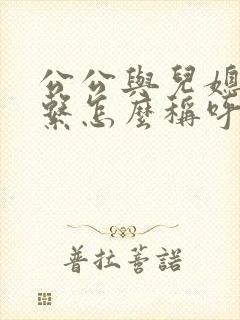 公公與兒媳
繫怎麼稱呼
普拉菩諾